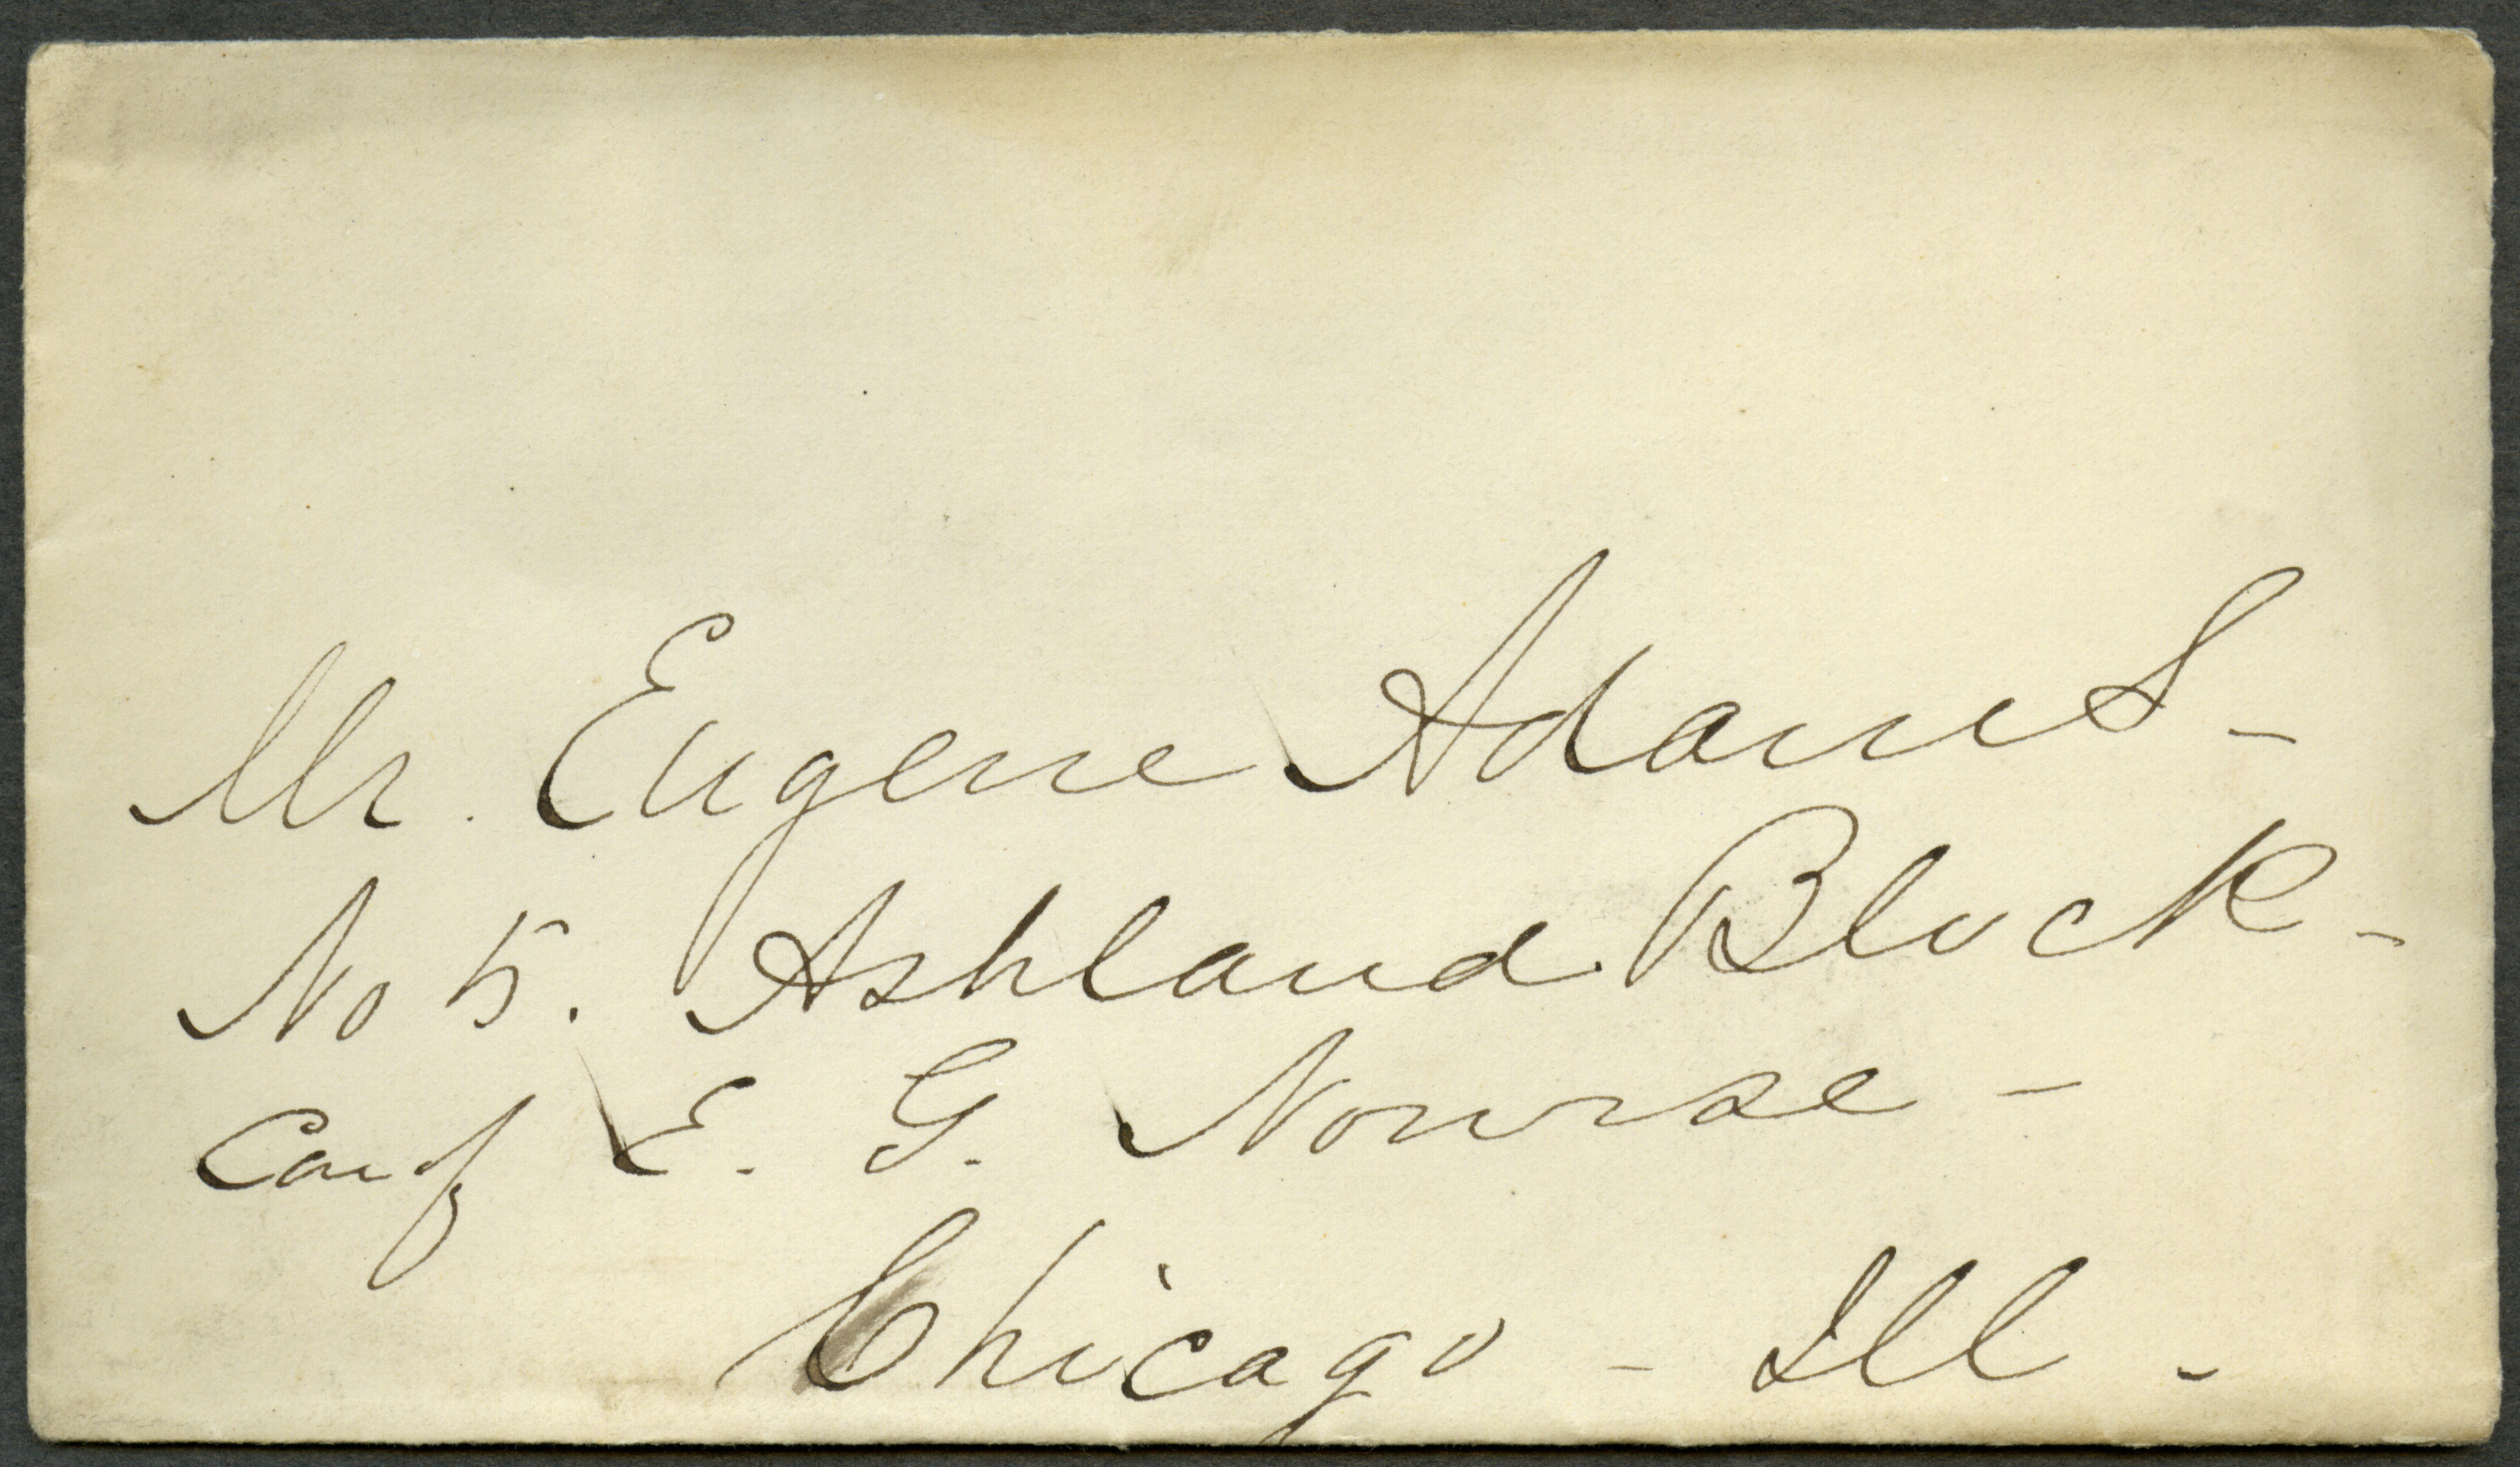 Mr. Eugene Adams -
No 5. Ashland Block -
Car of E. G. Nourse -
Chicago - Ill -